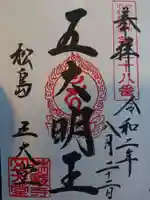 奉拝
令和二年
八月二十二日
五大明王
松島
五大堂